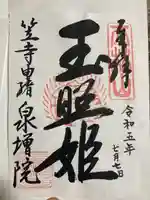 奉拝
令和五年
七月七日
玉照姫
笠寺西門前
泉増院